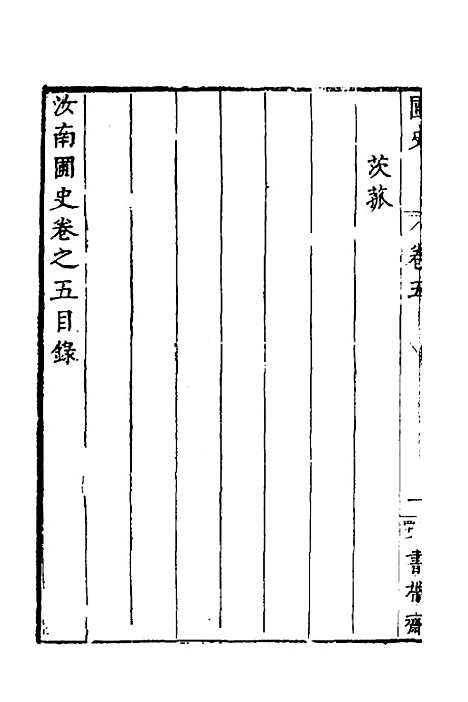 圃史
卷五
一
書帶齋
茨菰
汝南圃史卷之五目錄